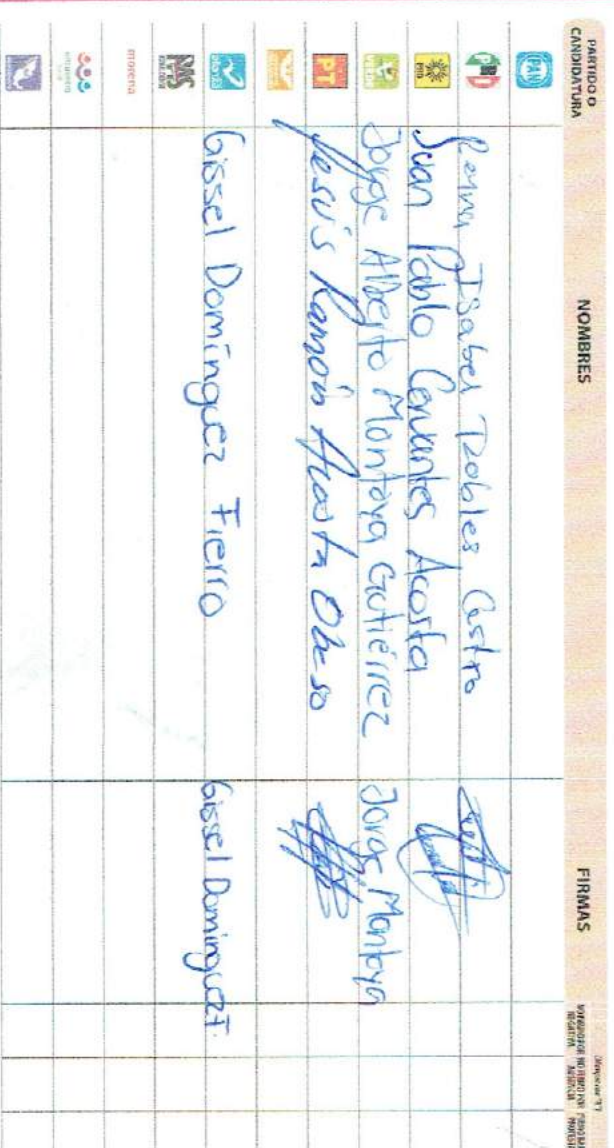 PARTIDO O CANDIDATURA NOMBRES FIRMAS
PAN
PRI Reyna Isabel Robles Castro
PRD Juan Pablo Cervantes Acosta
VERDE Jorge Alberto Montoya Gutiérrez Jorge Montoya
PT Jesús Ramón Acosta Obeso
Gissel Domínguez Fierro Gissel Domínguez F.
morena